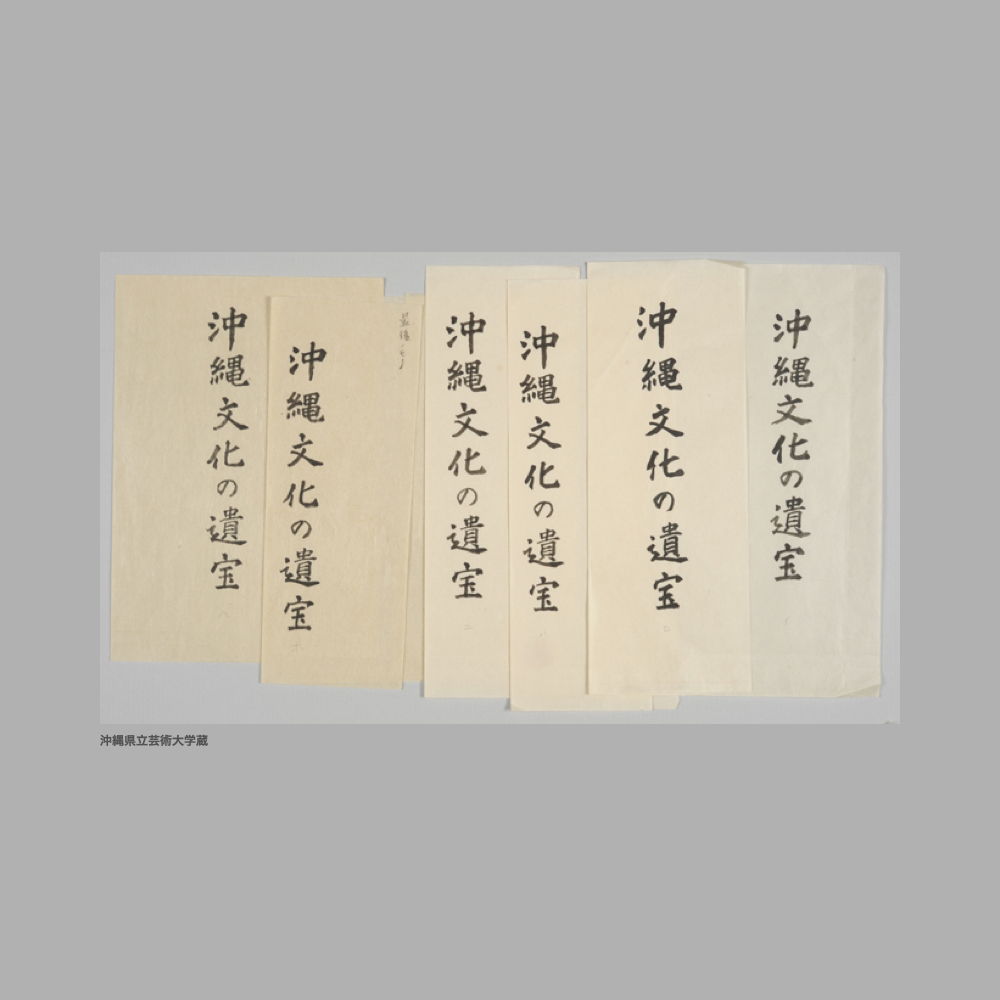 沖縄文化の遺宝
沖縄文化の遺宝
沖縄文化の遺宝
沖縄文化の遺宝
沖縄文化の遺宝
沖縄文化の遺宝
沖縄県立芸術大学蔵